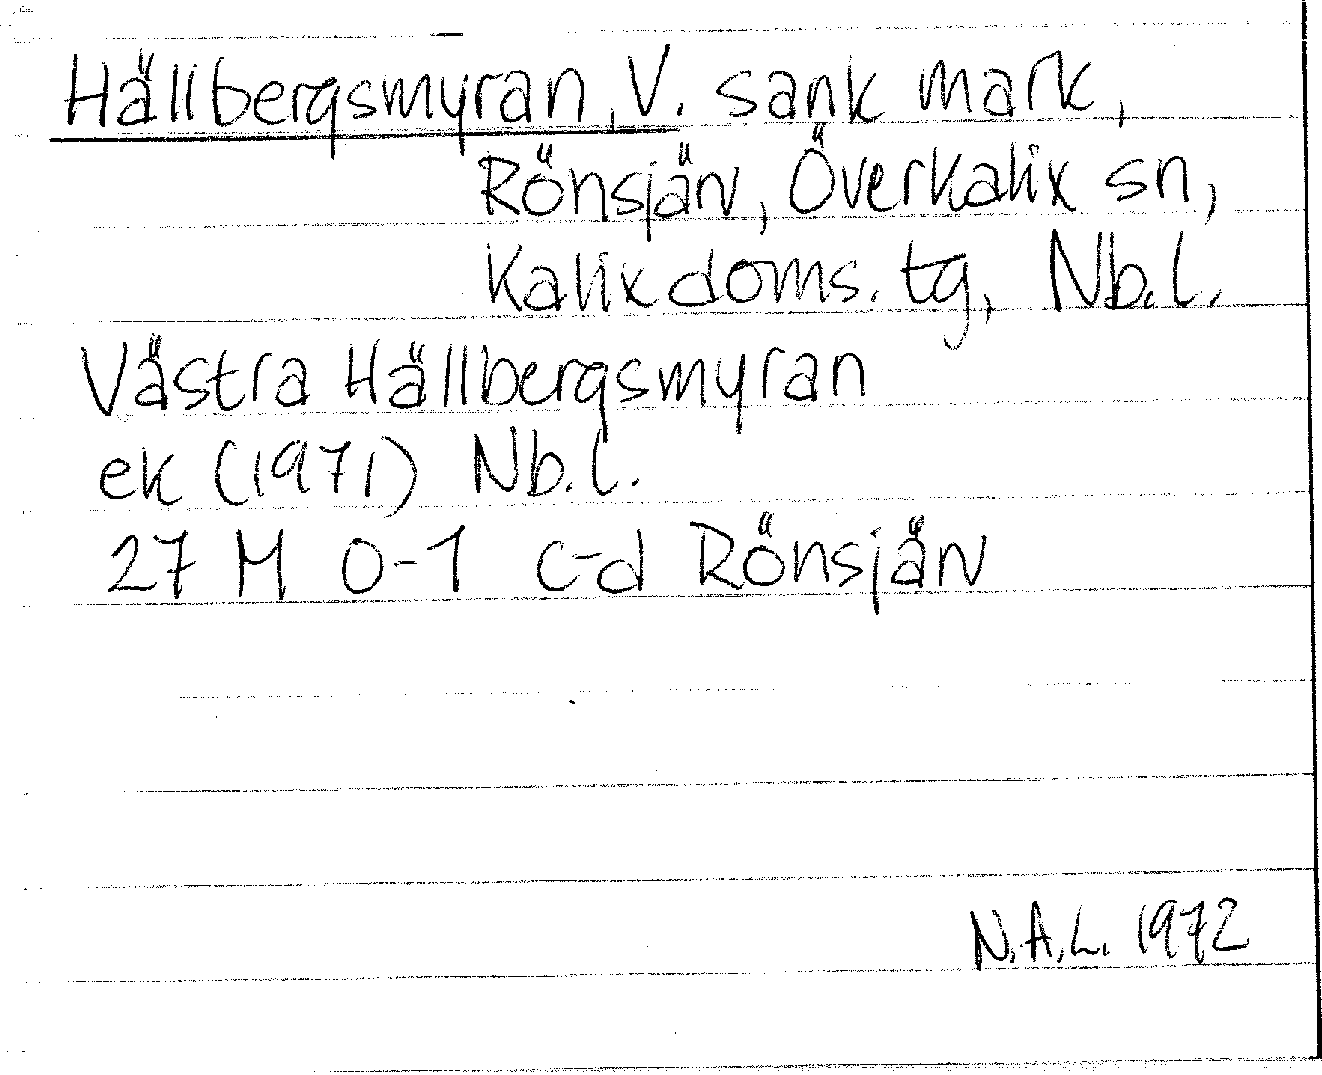 Hällbergsmyran, V. sank mark,
Rönsjän, Överkalix sn,
Kalix doms. tg, Nb.l.
Västra Hällbergsmyran
ek (1971) Nb.l.
27 M 0-1 c-d Rönsjän
N.A.L. 1972